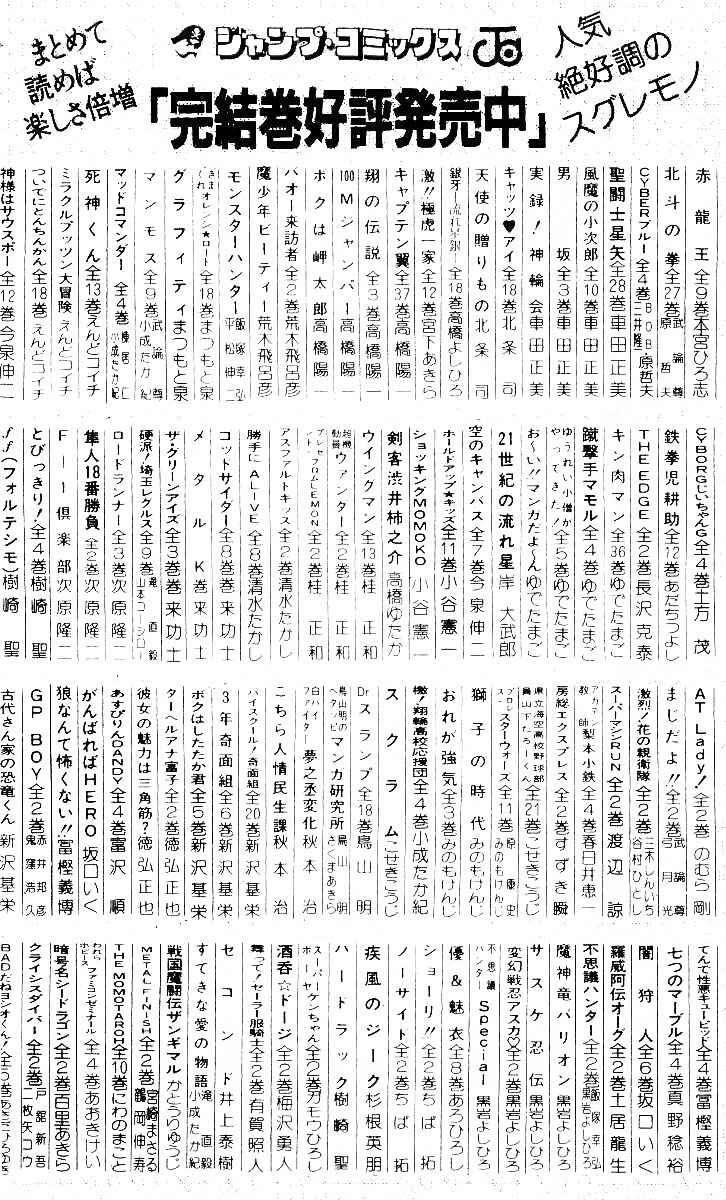 まとめて
読めば
楽しさ倍増
ジャンプ・コミックス
人気
絶好調の
スグレモノ
「完結巻好評発売中」
赤龍王 全9巻 本宮ひろ志
北斗の拳 全27巻 武論尊 原哲夫
CYBERブルー 全4巻 BOB 三井隆一 原哲夫
聖闘士星矢 全28巻 車田正美
風魔の小次郎 全10巻 車田正美
男坂 全3巻 車田正美
実録!神輪会 車田正美
キャッツ♥アイ 全18巻 北条司
天使の贈りもの 北条司
銀牙 流れ星 銀 全18巻 高橋よしひろ
激!!極虎一家 全12巻 宮下あきら
キャプテン翼 全37巻 高橋陽一
翔の伝説 全3巻 高橋陽一
100Mジャンパー 高橋陽一
ボクは岬太郎 高橋陽一
バオー来訪者 全2巻 荒木飛呂彦
魔少年ビーティー 荒木飛呂彦
モンスターハンター 飯塚幸弘 平松伸二
きまぐれオレンジ★ロード 全18巻 まつもと泉
グラフィティ まつもと泉
マンモス 全9巻 武論尊 小成たか紀
マッドコマンダー 全4巻 小成たか紀
死神くん 全13巻 えんどコイチ
ミラクルプッツン大冒険 えんどコイチ
ついでにとんちんかん 全18巻 えんどコイチ
神様はサウスポー 全12巻 今泉伸二
CYBORGじいちゃんG 全4巻 土方茂
鉄拳児耕助 全12巻 あだちつよし
THE EDGE 全2巻 長沢克泰
キン肉マン 全36巻 ゆでたまご
蹴撃手マモル 全4巻 ゆでたまご
ゆうれい小僧がやってきた! 全5巻 ゆでたまご
お〜い!!マンガだよ〜ん ゆでたまご
21世紀の流れ星 岸大武郎
空のキャンバス 全7巻 今泉伸二
ホールドアップ★キッズ 全11巻 小谷憲一
ショッキングMOMOKO 小谷憲一
剣客渋井柿之介 高橋ゆたか
ウイングマン 全13巻 桂正和
超機動員ヴァンダー 全2巻 桂正和
プレゼント・フロムLEMON 全2巻 桂正和
アスファルトキッズ 全2巻 清水たかし
勝手にALIVE 全8巻 清水たかし
ゴッドサイダー 全8巻 巻来功士
メタルK 巻来功士
ザ・グリーンアイズ 全3巻 巻来功士
硬派!埼玉レグルス 全9巻 滝直毅 山本コーシロー
ロードランナー 全3巻 次原隆二
隼人18番勝負 全2巻 次原隆二
F-1倶楽部 次原隆二
とびっきり! 全4巻 樹崎聖
ff(フォルテシモ) 樹崎聖
AT Lady! 全2巻 のむら剛
まじだよ!! 全2巻 武論尊 弓月光
激烈!花の親衛隊 全2巻 三木しんいち 谷村ひとし
スーパーマンRUN 全2巻 渡辺諒
アカテン教師 梨本小鉄 全4巻 春日井恵一
房総エクスプレス 全2巻 すずき瞬
県立海空高校野球部員山下たろーくん 全21巻 こせきこうじ
プロレス・スターウォーズ 全11巻 原康史 みのもけんじ
獅子の時代 みのもけんじ
おれが強気 全3巻 みのもけんじ
檄!翔輪高校応援団 全4巻 小成たか紀
スクラム こせきこうじ
Dr.スランプ 全18巻 鳥山明
鳥山明のヘタッピマンガ研究所 鳥山明 さくまあきら
白バイファイター 夢之丞変化 秋本治
こちら人情民生課 秋本治
ハイスクール!奇面組 全20巻 新沢基栄
3年奇面組 全6巻 新沢基栄
ボクはしたたか君 全5巻 新沢基栄
ターヘルアナ富子 全2巻 徳弘正也
彼女の魅力は三角筋? 徳弘正也
あすぴりんDANDY 全4巻 富沢順
がんばればHERO 坂口いく
狼なんて怖くない!! 冨樫義博
GP BOY 全2巻 赤井邦彦 鬼窪浩久
古代さん家の恐竜くん 新沢基栄
てんで性悪キューピッド 全4巻 冨樫義博
七つのマーブル 全4巻 真野稔裕
闇狩人 全6巻 坂口いく
羅威阿伝オーグ 全2巻 土居龍生
不思議ハンター 全2巻 飯塚幸弘 黒岩よしひろ
魔神竜バリオン 黒岩よしひろ
サスケ忍伝 黒岩よしひろ
変幻戦忍アスカ♡ 全2巻 黒岩よしひろ
不思議ハンターSpecial 黒岩よしひろ
優&魅衣 全8巻 あろひろし
ショーリ!! 全2巻 ちば拓
ノーサイド 全2巻 ちば拓
疾風のジーク 杉根英朋
ハードラック 樹崎聖
スーパーボーヤケンちゃん 全2巻 ガモウひろし
酒呑☆ドージ 全2巻 梅沢勇人
舞って!セーラー服騎士 全2巻 有賀照人
セコンド 井上泰樹
すてきな愛の物語 滝直毅 小成たか紀
戦国魔闘伝ザンギマル かとうりゅうじ
METAL FINISH 全2巻 宮崎まさる 鶴岡伸寿
THE MOMOTAROH 全10巻 にわのまこと
われらホビーズファミコンゼミナール 全4巻 あおきけい
暗号名シードラゴン 全2巻 百里あきら
クライシスダイバー 全2巻 戸舘新吾 二枚矢コウ
BADだねヨシオくん!